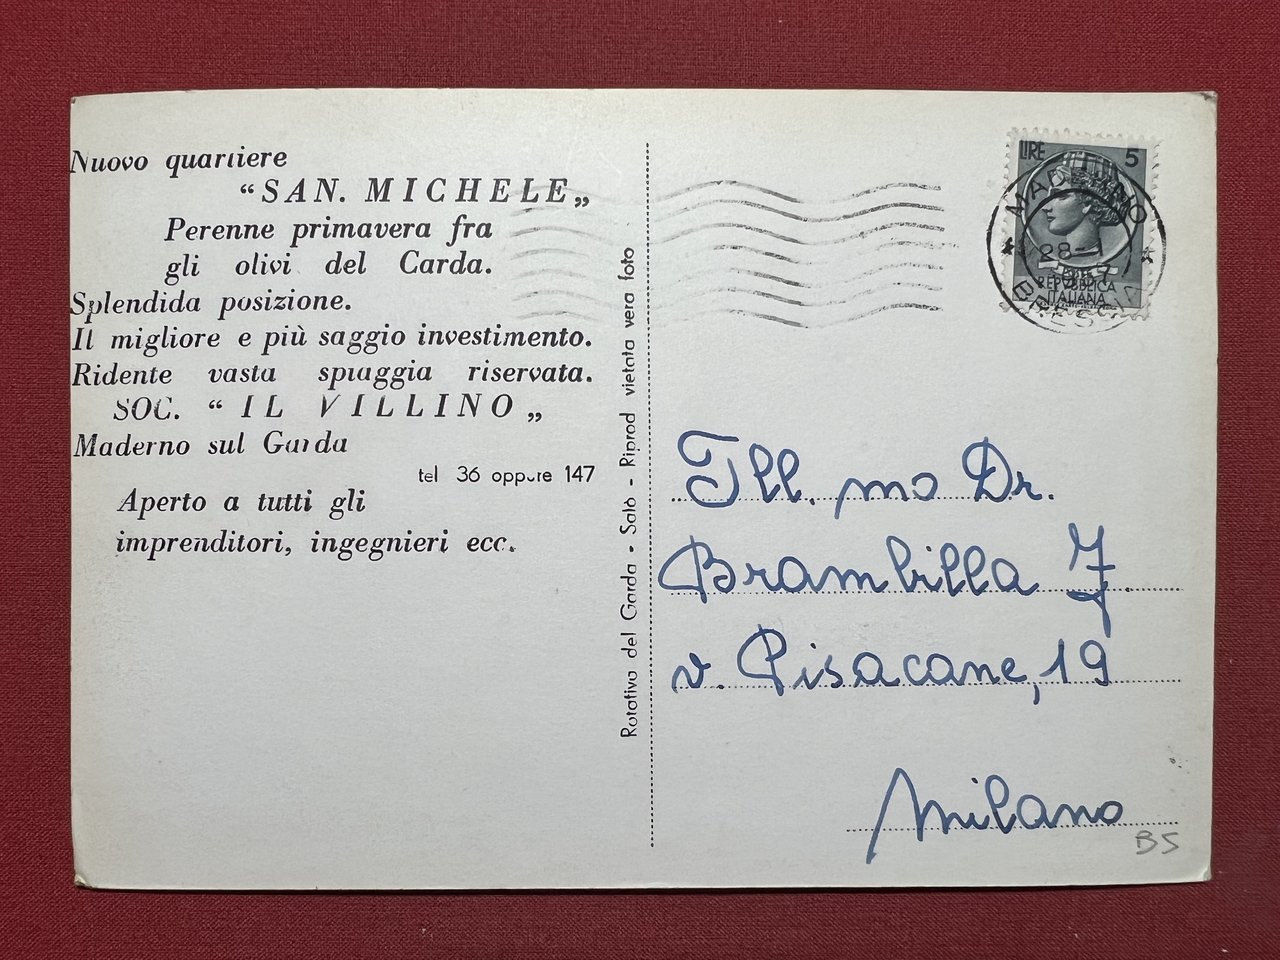 Nuovo quartiere
“SAN. MICHELE„
Perenne primavera fra
gli olivi del Carda.
Splendida posizione.
Il migliore e più saggio investimento.
Ridente vasta spiaggia riservata.
SOC. “IL VILLINO„
Maderno sul Garda
tel 36 oppure 147
Aperto a tutti gli
imprenditori, ingegnieri ecc.
Rotativa del Garda - Salò - Riprod vietata vera foto
LIRE 5
MADERNO
28-
REPUBBLICA
ITALIANA
Ill.mo Dr.
Brambilla J
v. Pisacane, 19
Milano
BS